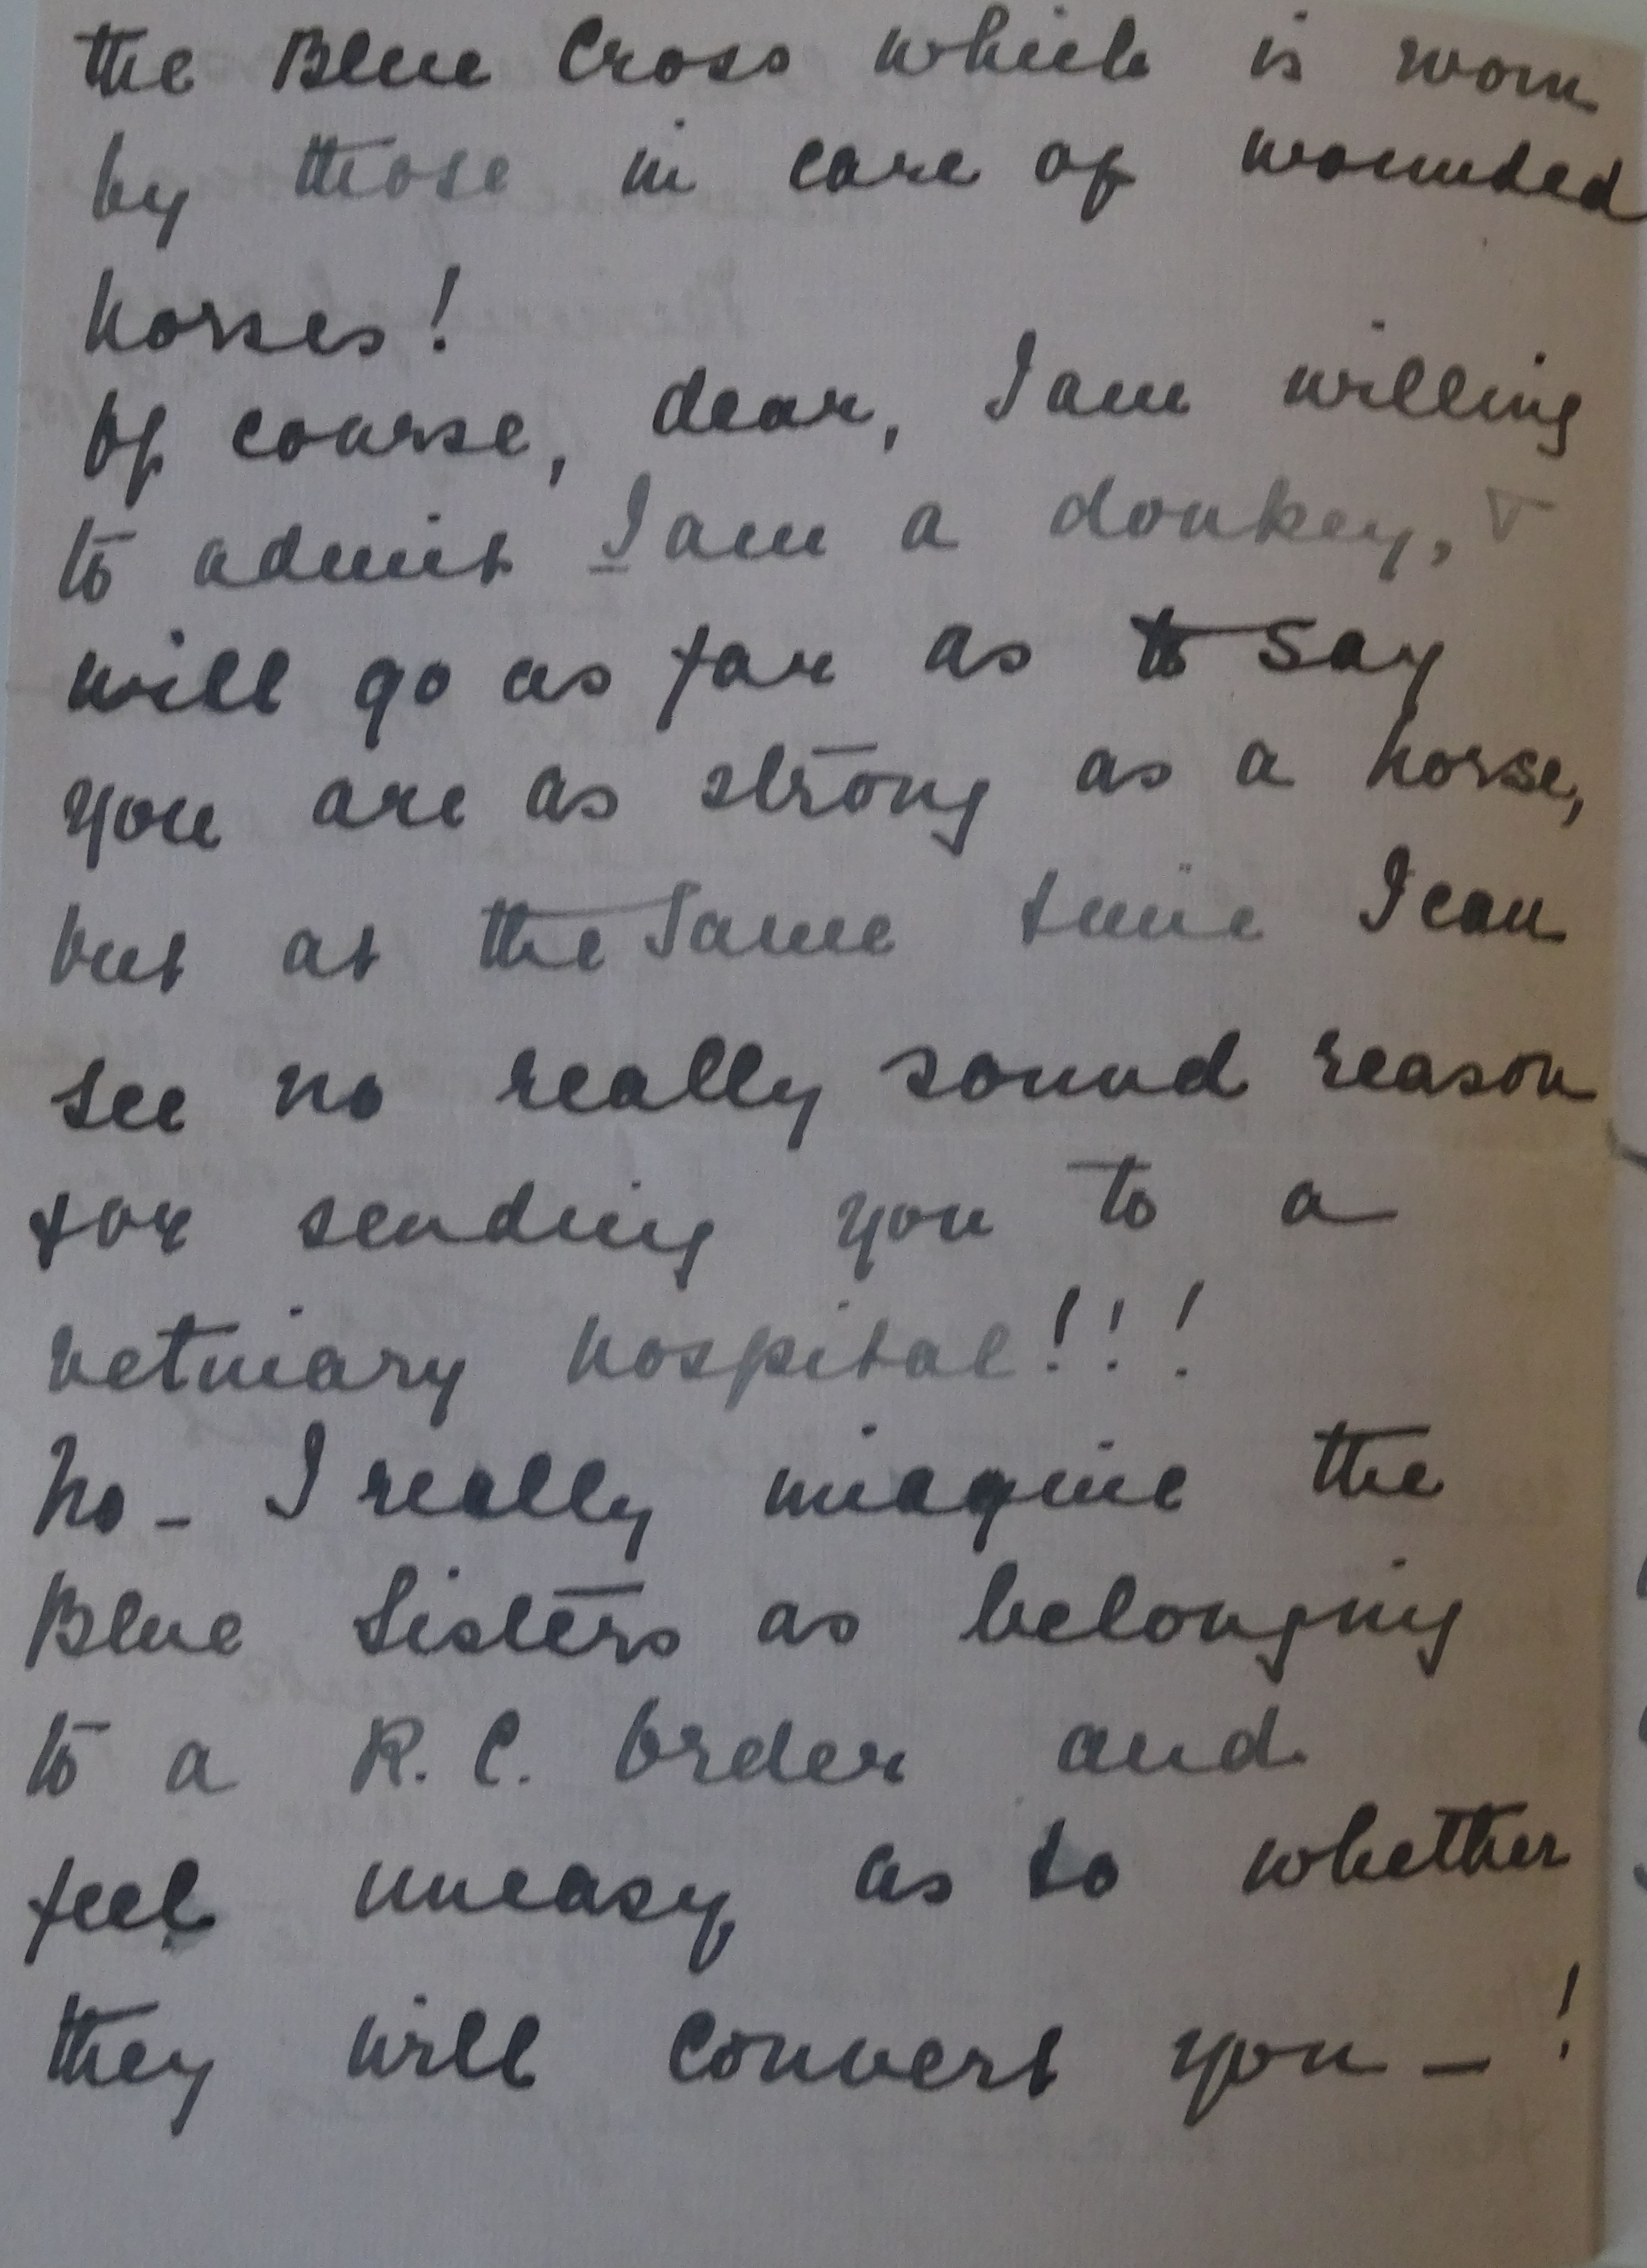 the Blue Cross which is worn
by those in care of wounded
horses!
Of course, dear, I am willing
to admit I am a donkey, &
will go as far as to say
you are as strong as a horse,
but at the same time I can
see no really sound reason
for sending you to a
vetniary hospital!!!
No - I really imagine the
Blue Sisters as belonging
to a R.C. Order and
feel uneasy as to whether
they will convert you - !